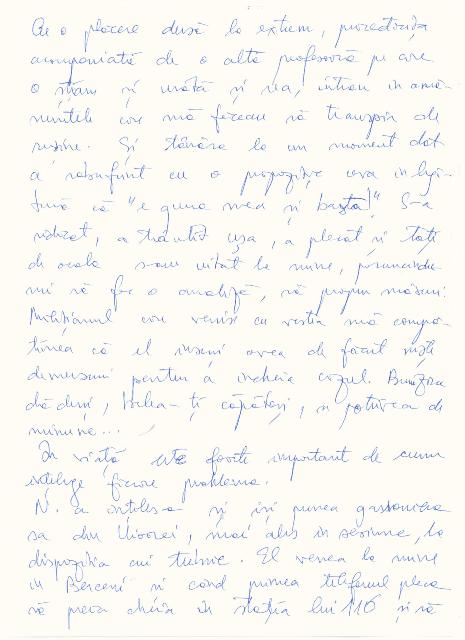 Cu o plăcere dusă la extrem, procedura
acompaniată de o altă profesoară pe care
o știam și urâtă și rea, intrau în amă-
nuntele care mă făceau să transpir de
rușine. Și tânăra la un moment dat
a răbufnit cu o propoziție ceva în legă-
tură că "e gura mea și basta!" S-a
ridicat, a trântit ușa, a plecat și toți
de acolo s-au uitat la mine,
mi să fac o analiză, să propun măsuri.
Milițianul care venise cu vestea mă compă-
timea că el însuși avea de făcut niște
demersuri pentru a încheia cazul. Bună ziua
dădeși, belea-ți căpătași, se potrivea de
minune...
În viață este foarte important de cum
înțelege fiecare problema.
N. a înțeles-o și își punea garsoniera
sa din Uioarei, mai ales în sesiune, la
dispoziția cui trebuie. El venea la mine
în Berceni și când punea telefonul pleca
să preia cheia în stația lui 116 și să